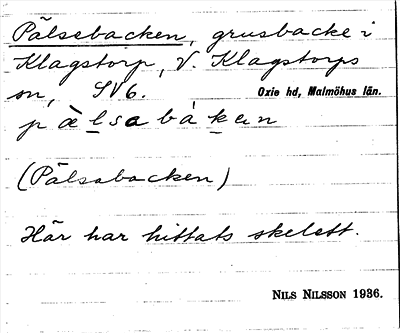 Pälsebacken, grusbacke i
Klagstorp, V. Klagstorps
sn, SV6. Oxie hd, Malmöhus län.
pàlsabákan
(Pälsabacken)
Här har hittats skelett.
NILS NILSSON 1936.